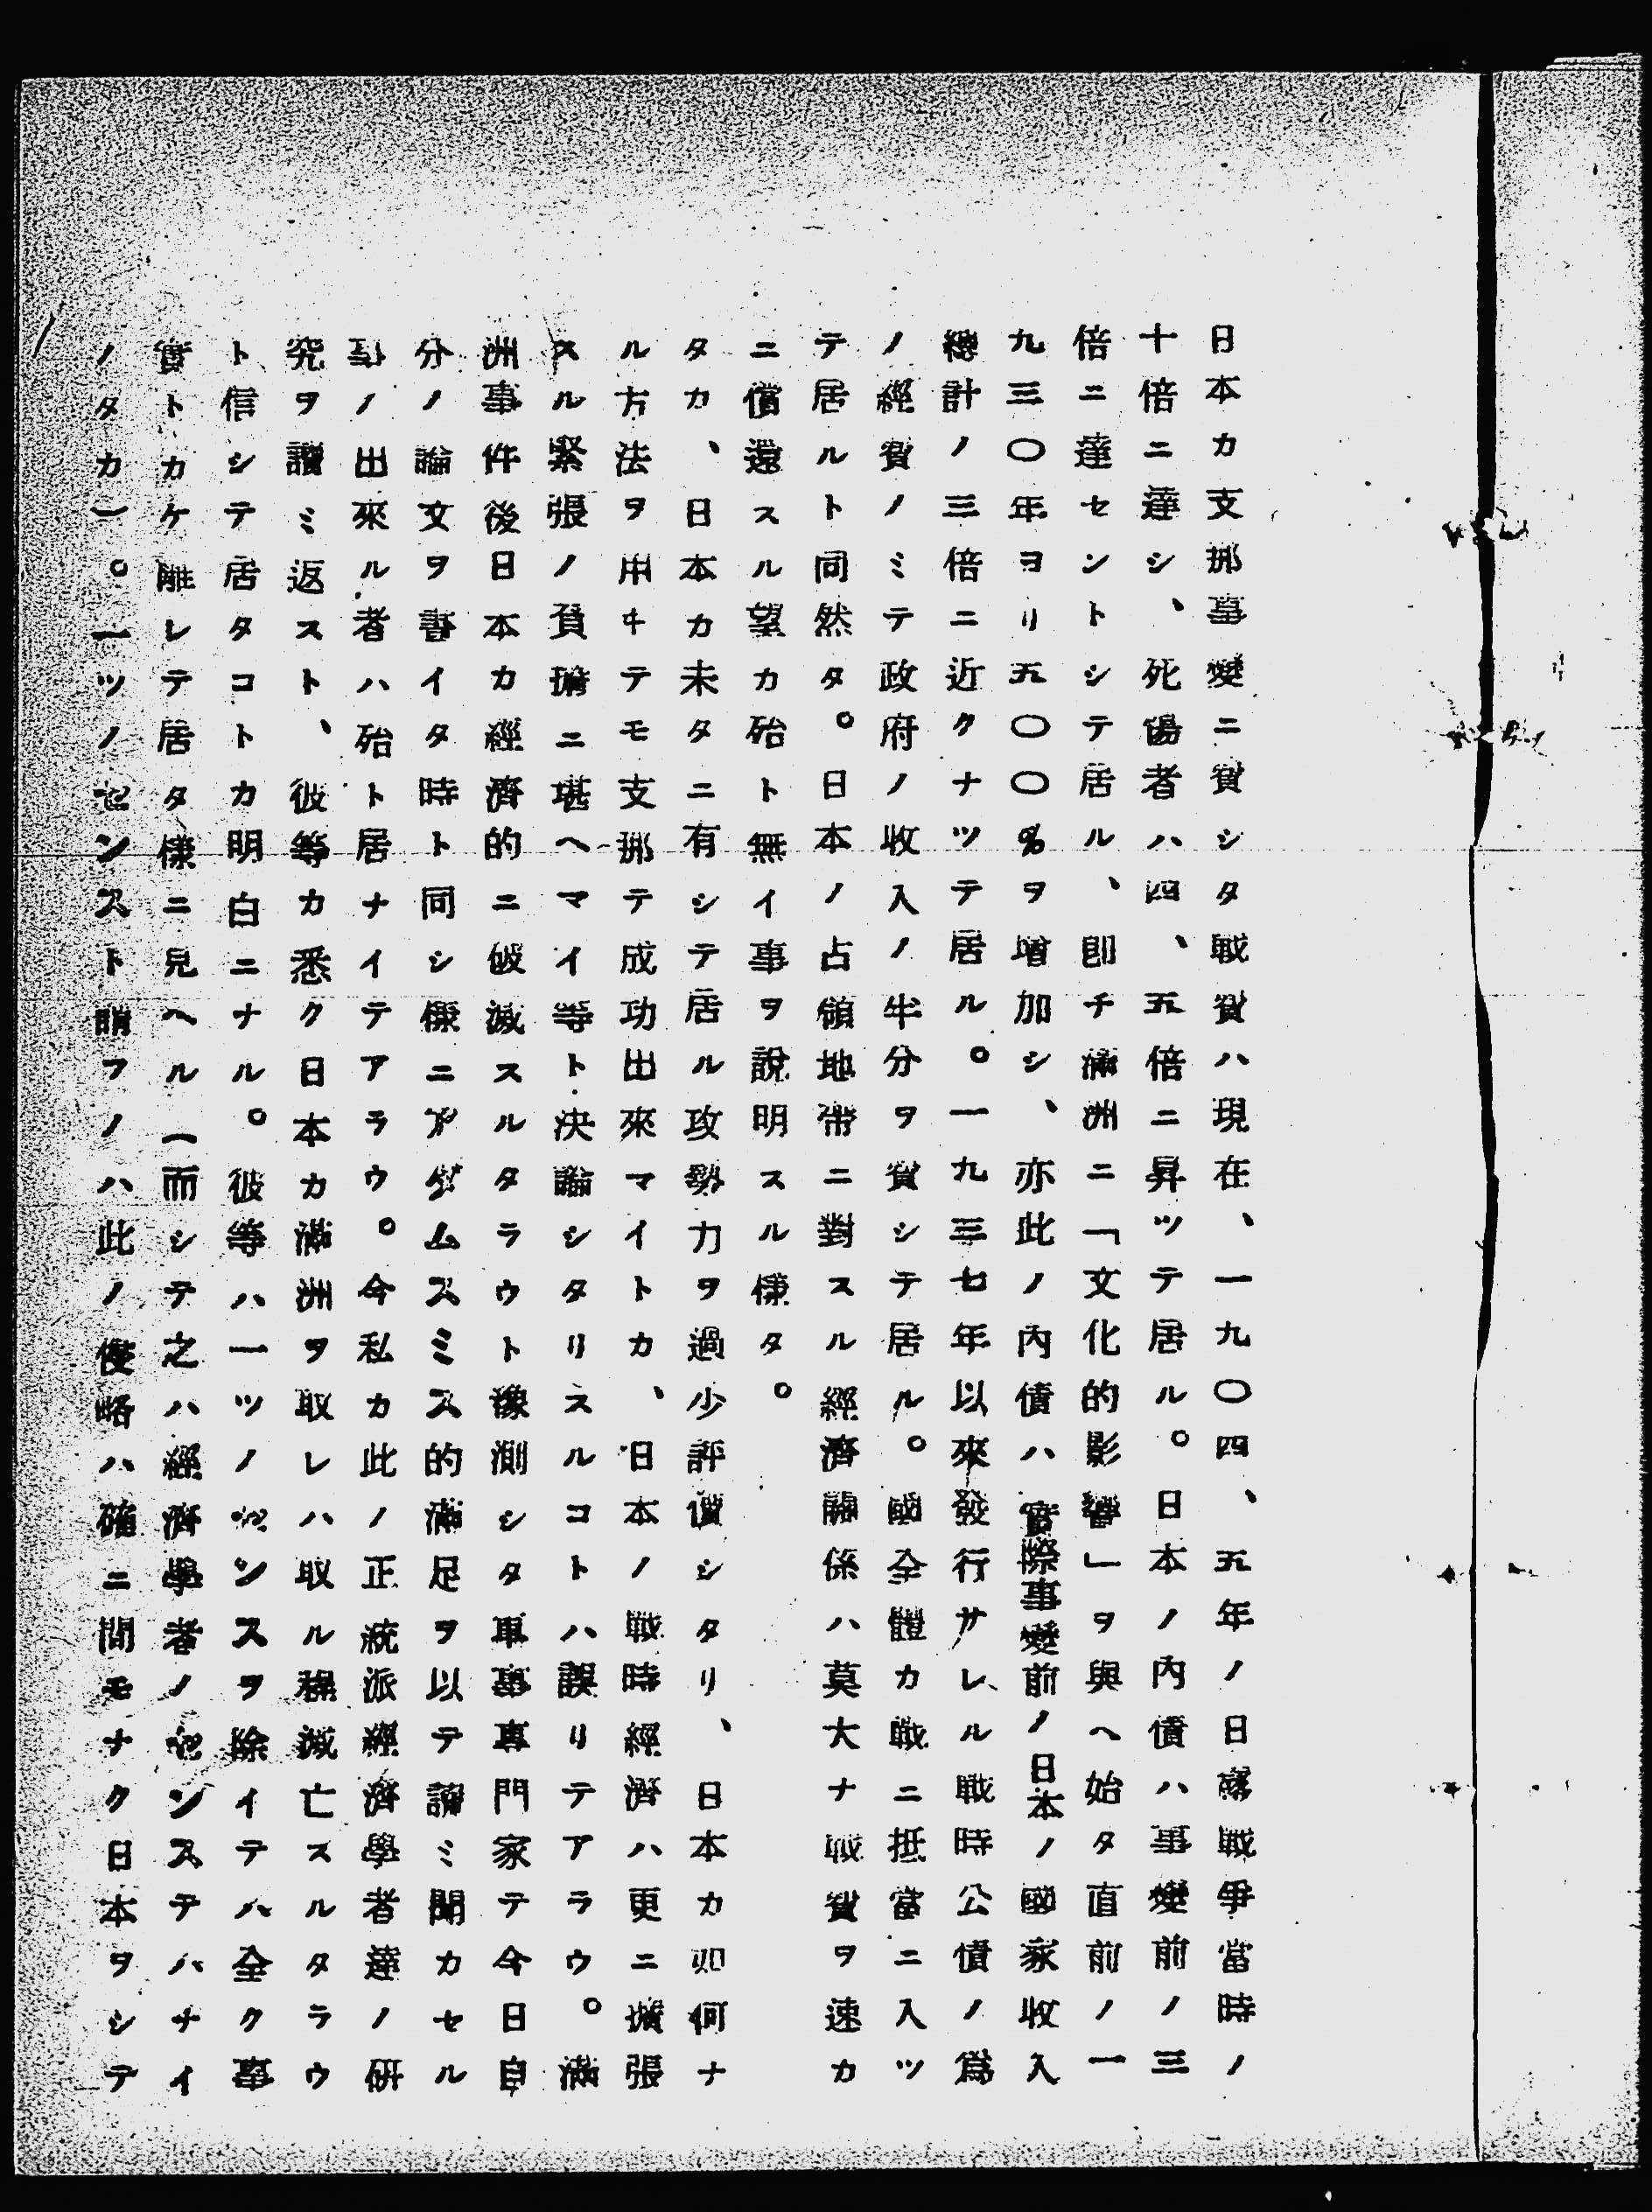 日本カ支那事變ニ費シタ戰費ハ現在、一九〇四、五年ノ日露戰爭當時ノ
十倍ニ達シ、死傷者ハ四、五倍ニ昇ツテ居ル。日本ノ內債ハ事變前ノ三
倍ニ達セントシテ居ル、卽チ滿洲ニ「文化的影響」ヲ與ヘ始タ直前ノ一
九三〇年ヨリ五〇〇%ヲ增加シ、亦此ノ內債ハ實際事變前ノ日本ノ國家收入
總計ノ三倍ニ近クナツテ居ル。一九三七年以來發行サレル戰時公債ノ爲
ノ經費ノミテ政府ノ收入ノ半分ヲ費シテ居ル。國全體カ戰ニ抵當ニ入ツ
テ居ルト同然タ。日本ノ占領地帶ニ對スル經濟關係ハ莫大ナ戰費ヲ速カ
ニ償還スル望カ殆ト無イ事ヲ說明スル樣タ。
タカ、日本カ未タニ有シテ居ル攻勢力ヲ過少評價シタリ、日本カ如何ナ
ル方法ヲ用ヰテモ支那テ成功出來マイトカ、日本ノ戰時經濟ハ更ニ擴張
スル緊張ノ負擔ニ堪ヘマイ等ト決論シタリスルコトハ誤リテアラウ。滿
洲事件後日本カ經濟的ニ破滅スルタラウト豫測シタ軍事專門家テ今日自
分ノ論文ヲ書イタ時ト同シ樣ニアダムスミス的滿足ヲ以テ讀ミ聞カセル
事ノ出來ル者ハ殆ト居ナイテアラウ。今私カ此ノ正統派經濟學者達ノ研
究ヲ讀ミ返スト、彼等カ悉ク日本カ滿洲ヲ取レハ取ル程滅亡スルタラウ
ト信シテ居タコトカ明白ニナル。彼等ハ一ツノセンスヲ除イテハ全ク事
實トカケ離レテ居タ樣ニ見ヘル(而シテ之ハ經濟學者ノセンステハナイ
ノタカ)。一ツノセンスト謂フノハ此ノ侵略ハ確ニ間モナク日本ヲシテ